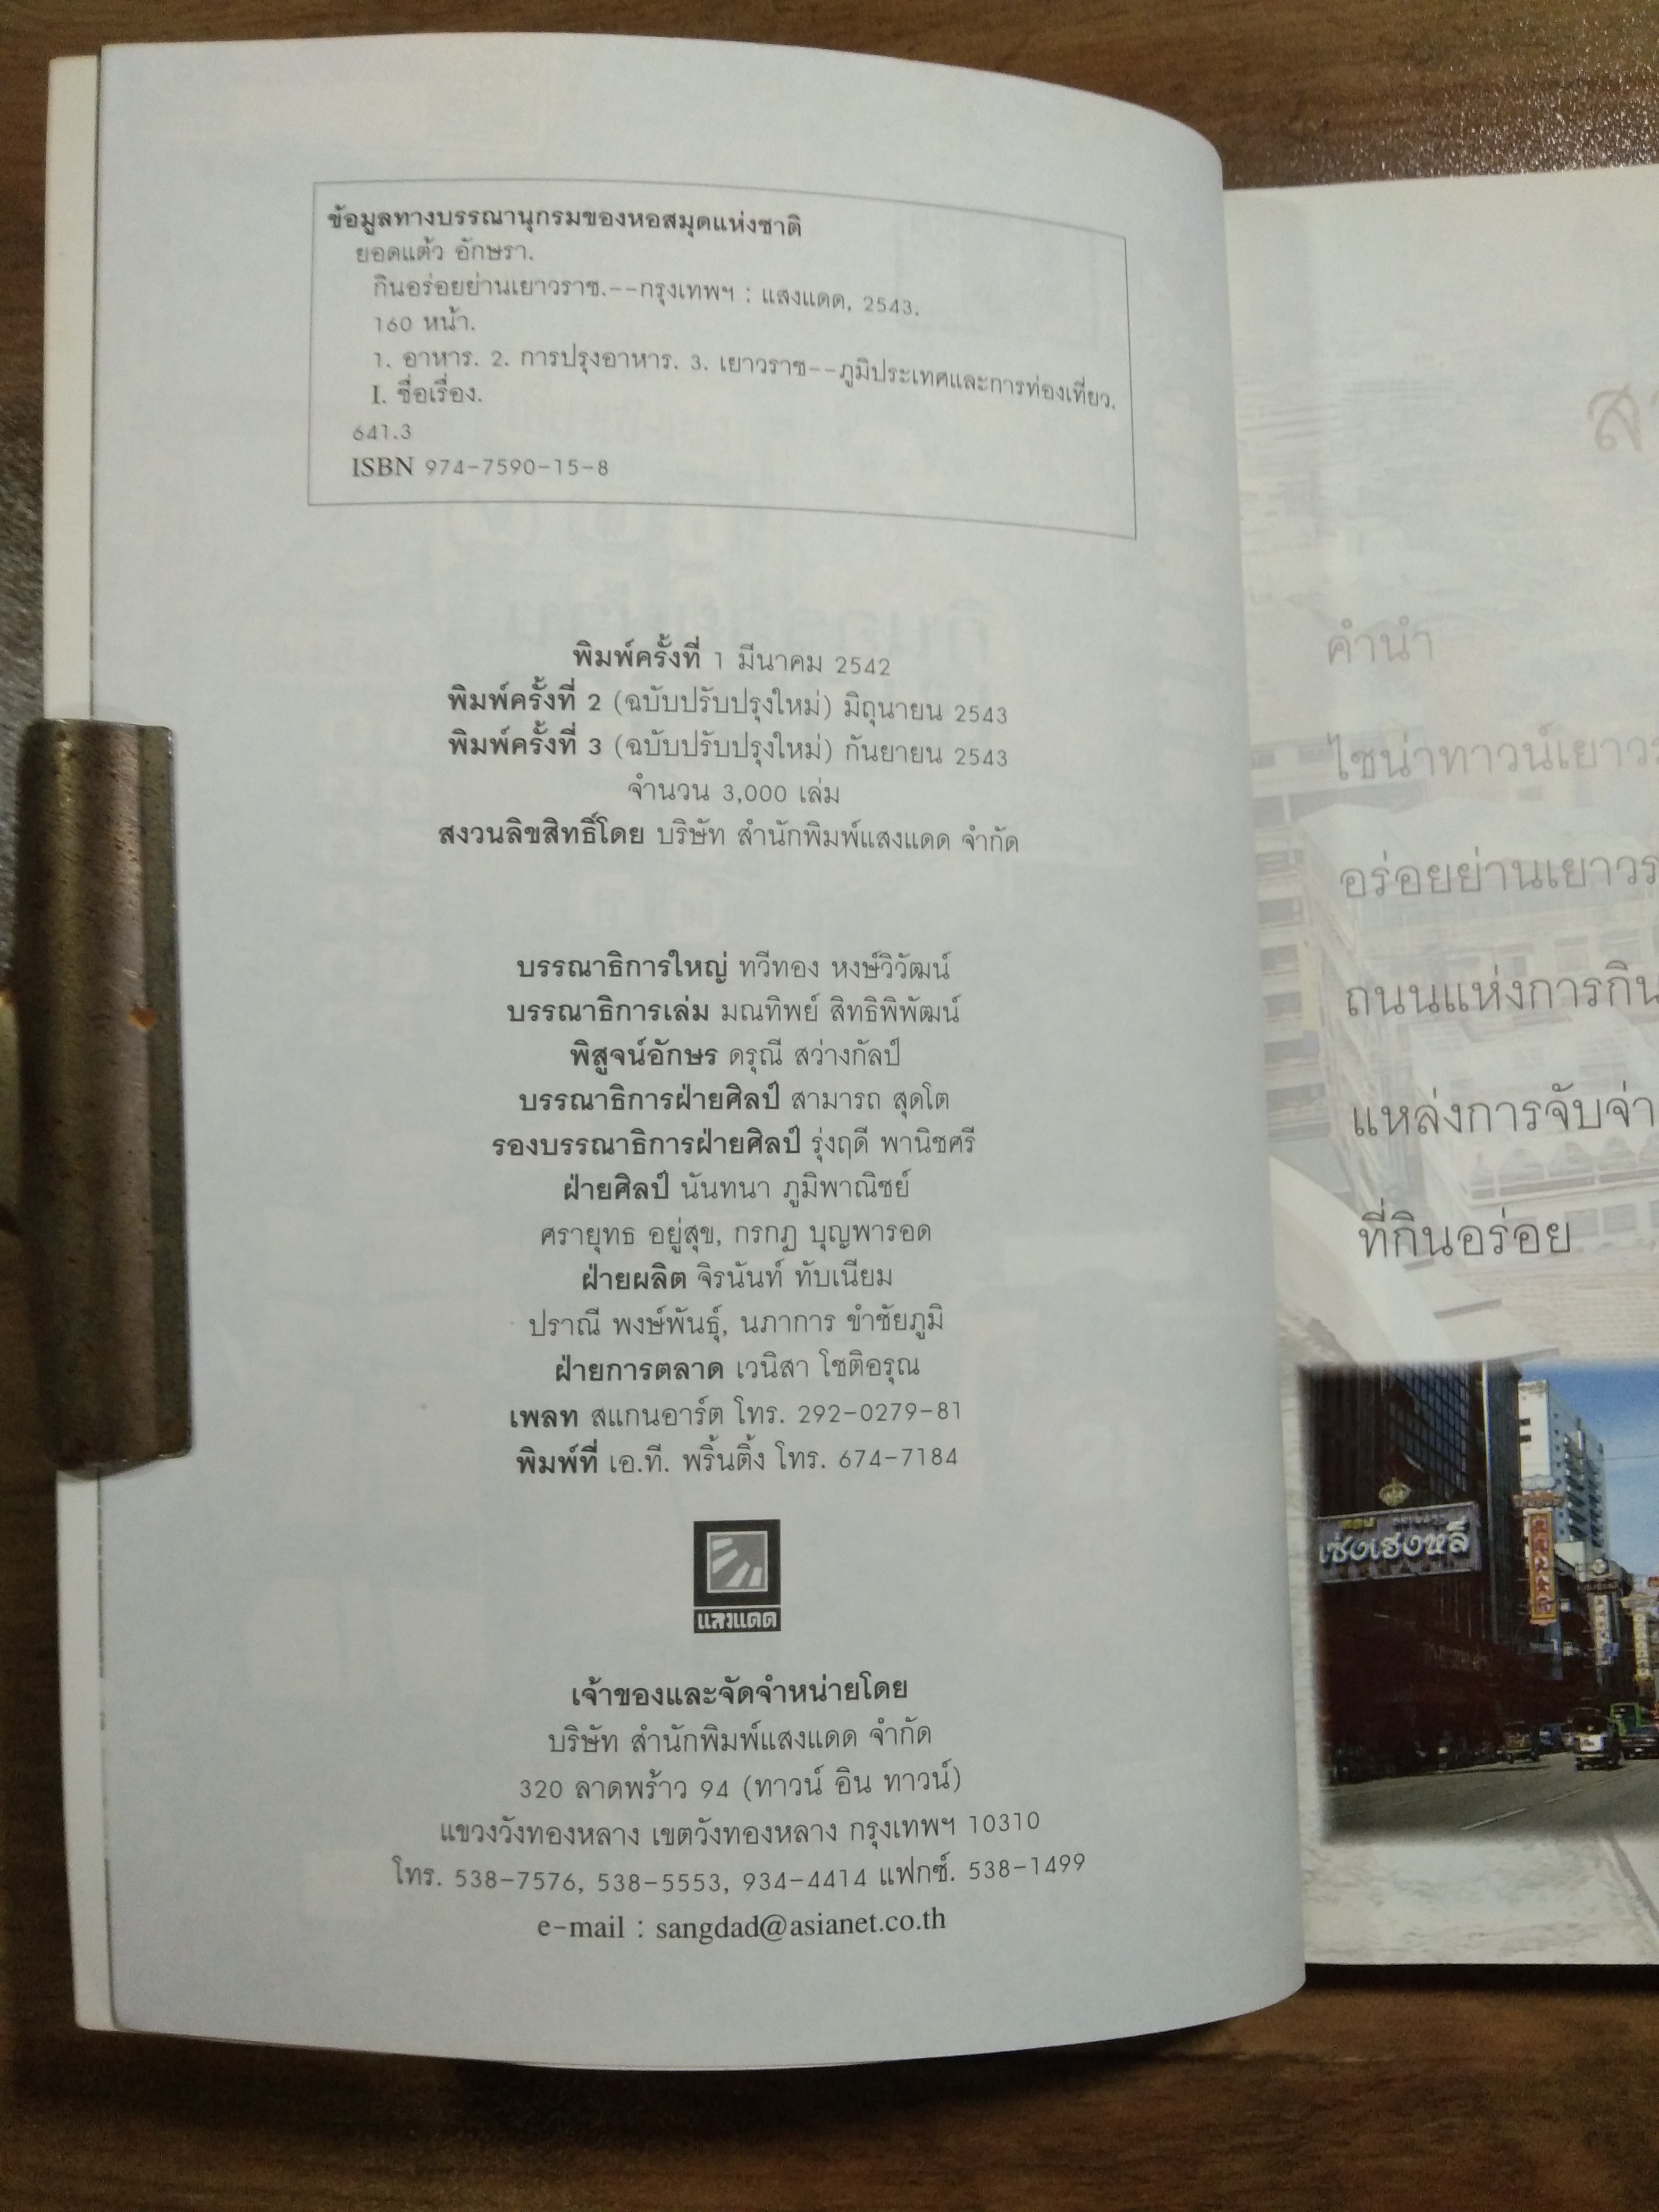 ข้อมูลทางบรรณานุกรมของหอสมุดแห่งชาติ
ยอดแต้ว อักษรา.
กินอร่อยย่านเยาวราช.--กรุงเทพฯ : แสงแดด, 2543.
160 หน้า.
1. อาหาร. 2. การปรุงอาหาร. 3. เยาวราช--ภูมิประเทศและการท่องเที่ยว.
I. ชื่อเรื่อง.
641.3
ISBN 974-7590-15-8
พิมพ์ครั้งที่ 1 มีนาคม 2542
พิมพ์ครั้งที่ 2 (ฉบับปรับปรุงใหม่) มิถุนายน 2543
พิมพ์ครั้งที่ 3 (ฉบับปรับปรุงใหม่) กันยายน 2543
จำนวน 3,000 เล่ม
สงวนลิขสิทธิ์โดย บริษัท สำนักพิมพ์แสงแดด จำกัด
บรรณาธิการใหญ่ ทวีทอง หงษ์วิวัฒน์
บรรณาธิการเล่ม มณทิพย์ สิทธิพิพัฒน์
พิสูจน์อักษร ดรุณี สว่างกัลป์
บรรณาธิการฝ่ายศิลป์ สามารถ สุดโต
รองบรรณาธิการฝ่ายศิลป์ รุ่งฤดี พานิชศรี
ฝ่ายศิลป์ นันทนา ภูมิพาณิชย์
ศรายุทธ อยู่สุข, กรกฎ บุญพารอด
ฝ่ายผลิต จิรนันท์ ทับเนียม
ปราณี พงษ์พันธุ์, นภาการ ขำชัยภูมิ
ฝ่ายการตลาด เวนิสา โชติอรุณ
เพลท สแกนอาร์ต โทร. 292-0279-81
พิมพ์ที่ เอ.ที. พริ้นติ้ง โทร. 674-7184
แสงแดด
เจ้าของและจัดจำหน่ายโดย
บริษัท สำนักพิมพ์แสงแดด จำกัด
320 ลาดพร้าว 94 (ทาวน์ อิน ทาวน์)
แขวงวังทองหลาง เขตวังทองหลาง กรุงเทพฯ 10310
โทร. 538-7576, 538-5553, 934-4414 แฟกซ์. 538-1499
e-mail : sangdad@asianet.co.th
คำนำ
ไชน่าทาวน์เยาวร
อร่อยย่านเยาวร
ถนนแห่งการกิน
แหล่งการจับจ่า
ที่กินอร่อย
เซ่งเฮงหลี